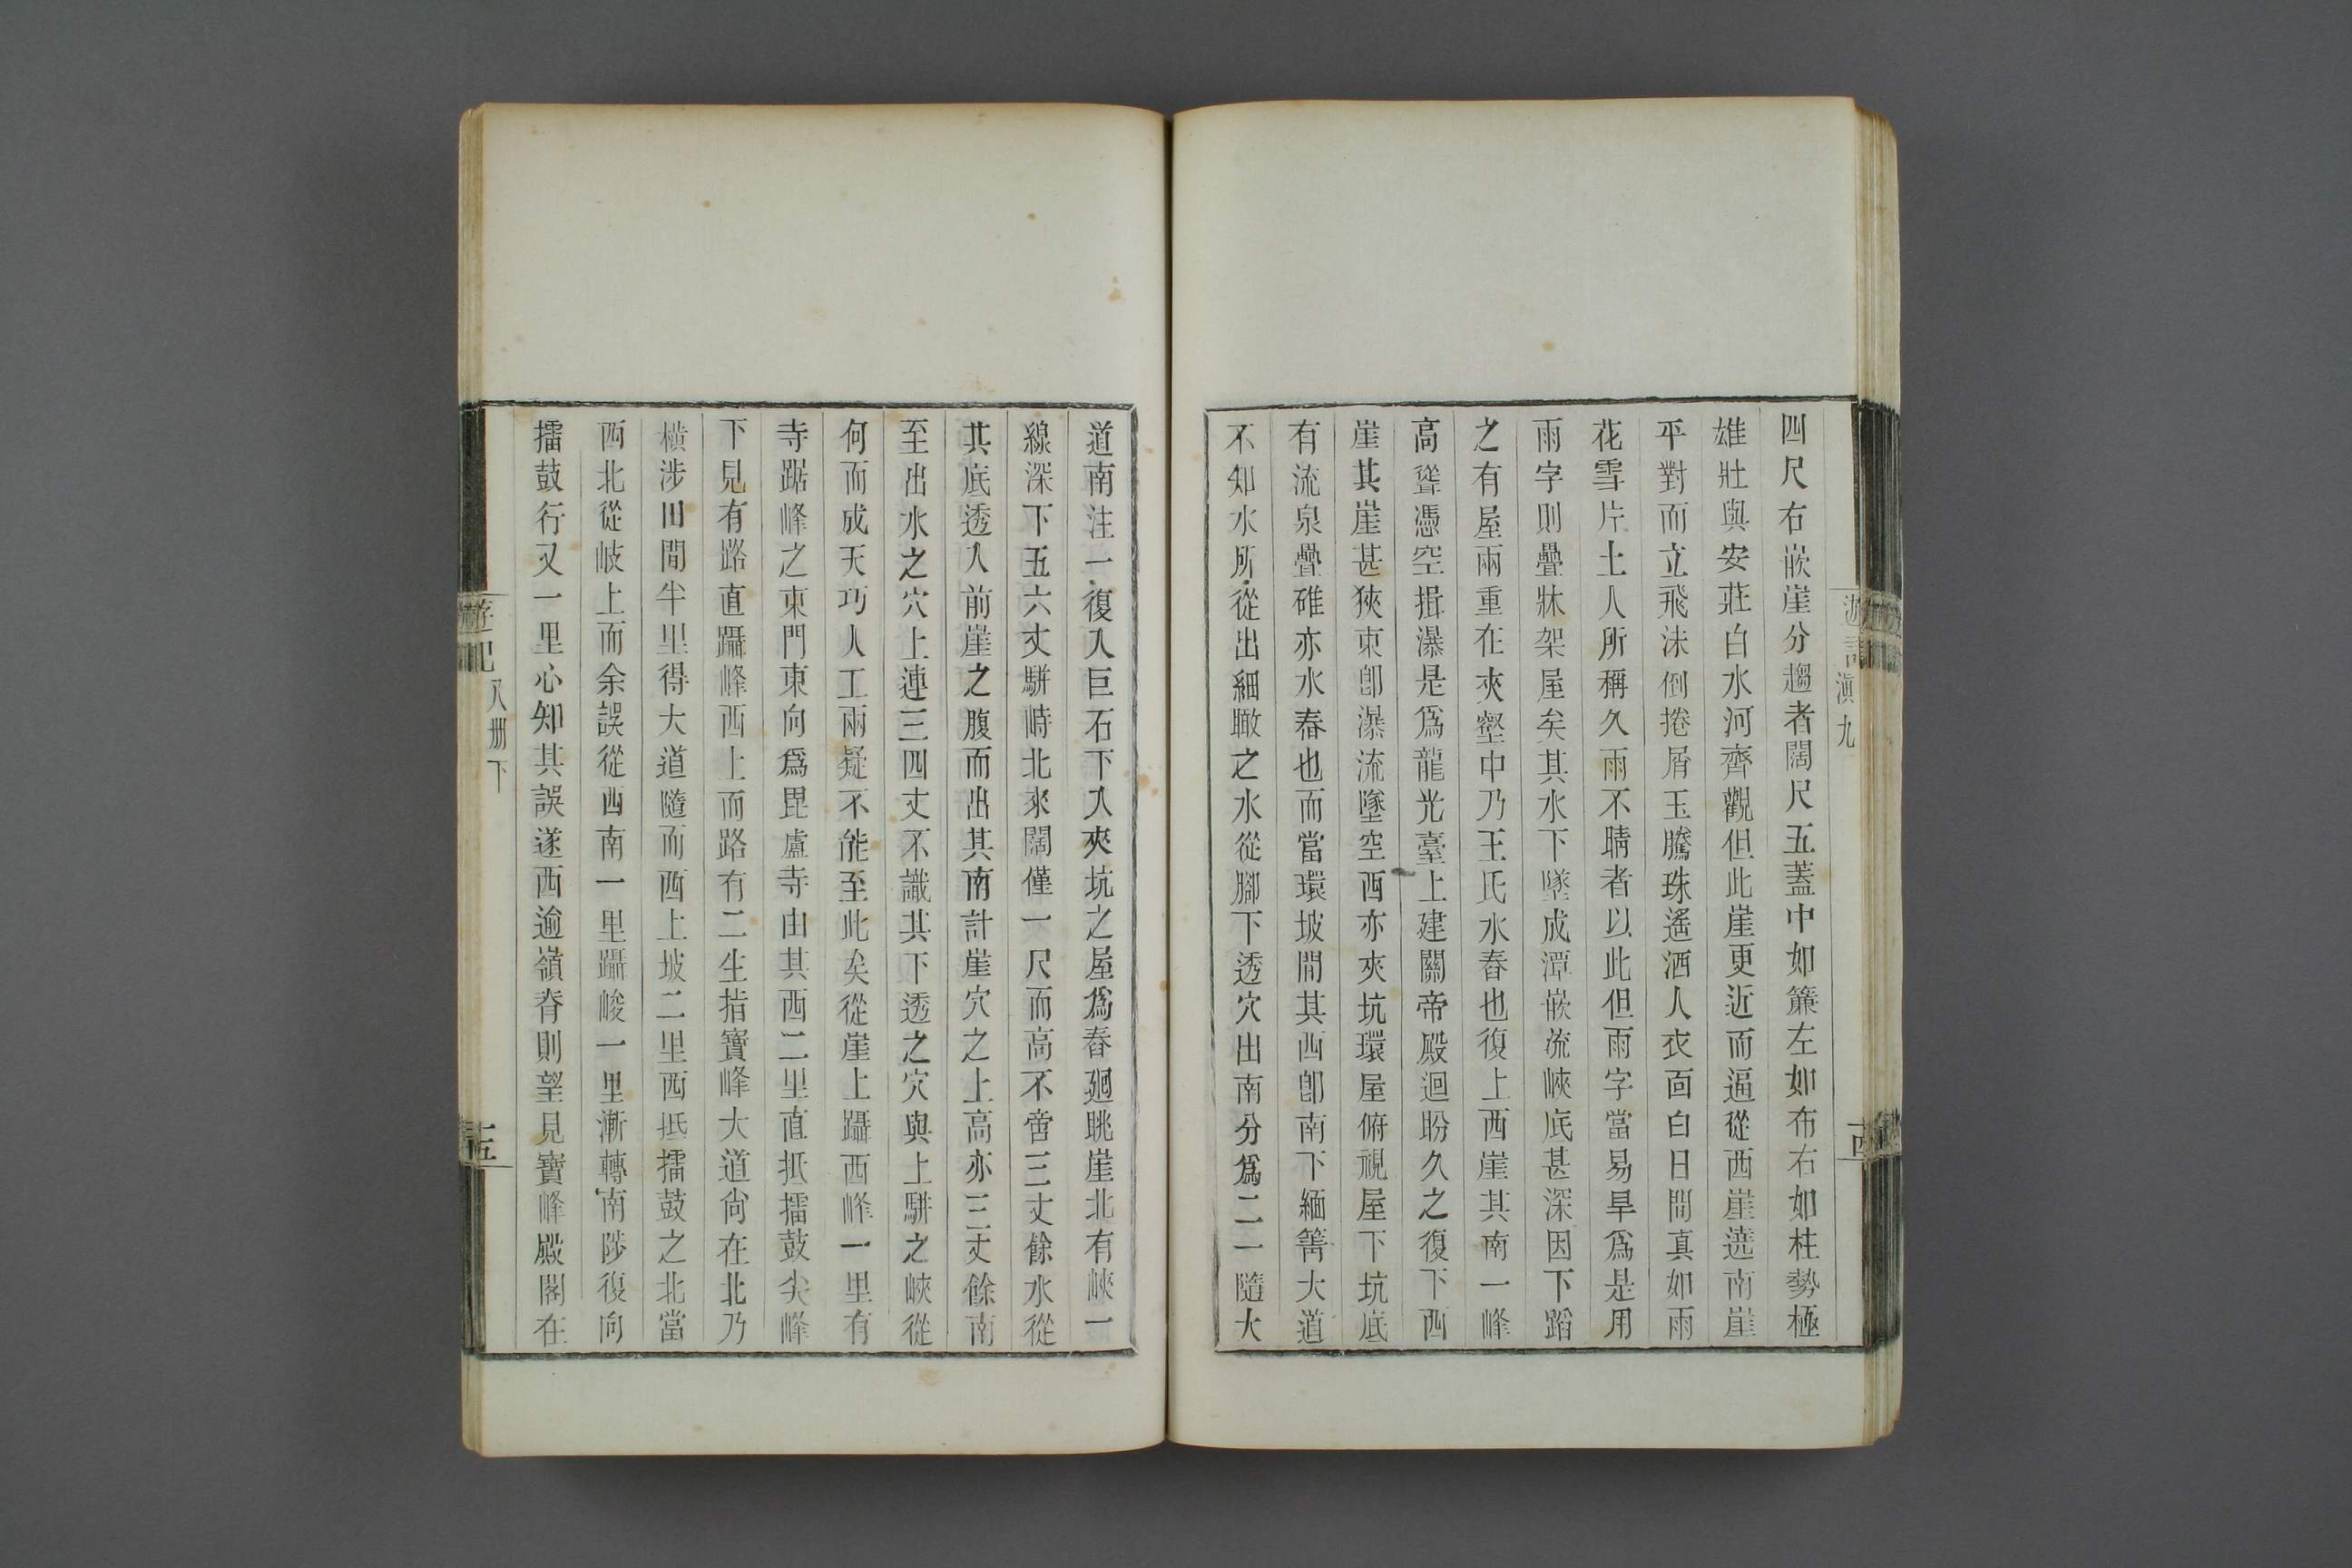 四尺右嵌崖分趨者闊尺五蓋中如簾左如布右如柱勢極
雄壯與安莊白水河齊觀但此崖更近而逼從西崖遶南崖
平對而立飛沫倒捲屑玉騰珠遙洒人衣面白日間真如雨
花雪片土人所稱久雨不晴者以此但雨字當易旱爲是用
雨字則疊牀架屋矣其水下墜成潭嵌流峽底甚深因下蹈
之有屋兩重在夾壑中乃王氏水舂也復上西崖其南一峰
高聳憑空揖瀑是爲龍光臺上建關帝殿迴盼久之復下西
崖其崖甚狹東卽瀑流墜空西亦夾坑環屋俯視屋下坑底
有流泉疊碓亦水舂也而當環坡間其西卽南下緬箐大道
不知水所從出細瞰之水從腳下透穴出南分爲二一隨大
道南注一復入巨石下入夾坑之屋爲舂廻眺崖北有峽一
線深下五六丈駢峙北來闊僅一尺而高不啻三丈餘水從
其底透入前崖之腹而出其南計崖穴之上高亦三丈餘南
至出水之穴上連三四丈不識其下透之穴與上駢之峽從
何而成天巧人工兩疑不能至此矣從崖上躡西峰一里有
寺踞峰之東門東向爲毘盧寺由其西二里直抵擂鼓尖峰
下見有路直躡峰西上而路有二生指寶峰大道尙在北乃
橫涉田間半里得大道隨而西上坡二里西抵擂鼓之北當
西北從岐上而余誤從西南一里躡峻一里漸轉南陟復向
擂鼓行又一里心知其誤遂西逾嶺脊則望見寶峰殿閣在
遊記
滇九
遊記
八册下
十五